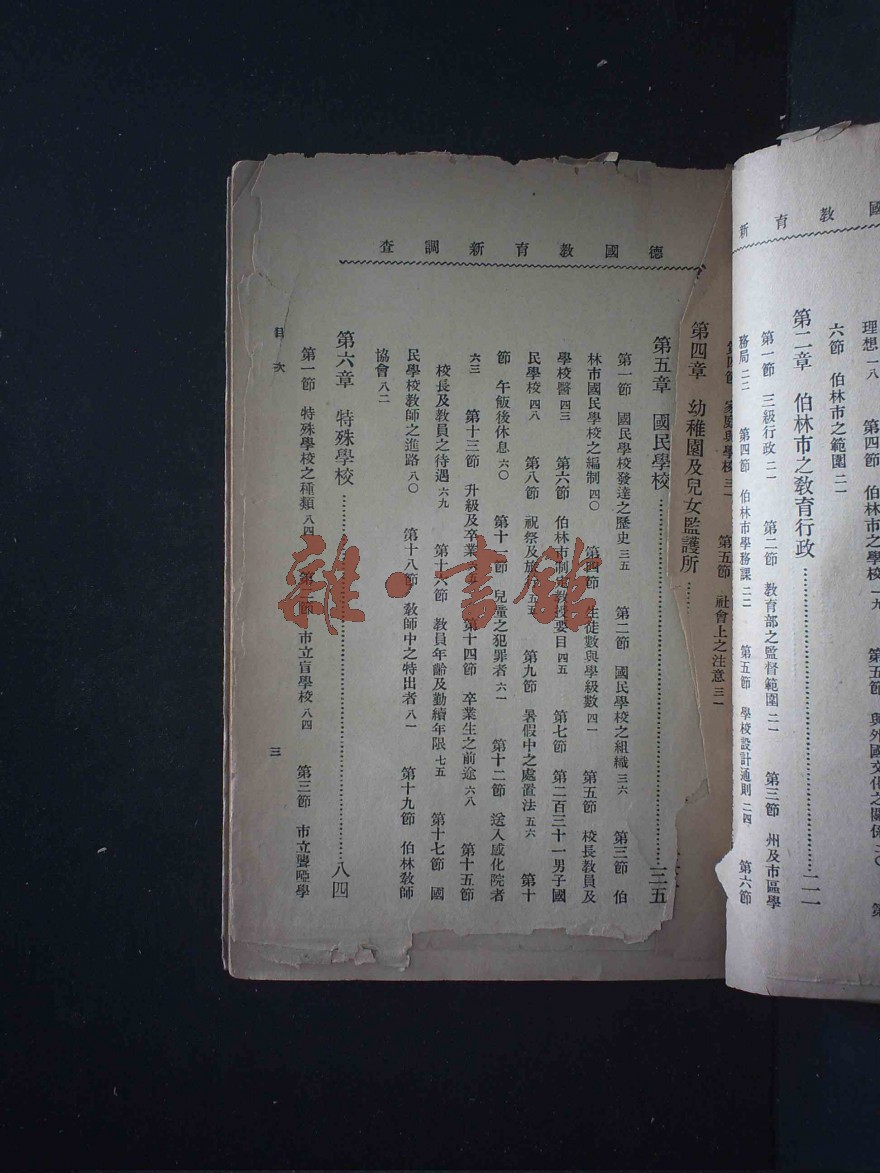 國 教 育 新
理想 一八　第四節　伯林市之學校 一九　第五節　與外國文化之關係 二〇　第
六節　伯林市之範圍 二一
第二章　伯林市之教育行政…………二一
第一節　三級行政 二一　第二節　教育部之監督範圍 二一　第三節　州及市區學
務局 二二　第四節　伯林市學務課 二二　第五節　學校設計通則 二四　第六節
德國教育新調查
第四節　家庭與學校 三一　第五節　社會上之注意 三一
第四章　幼稚園及兒女監護所……
第五章　國民學校…………三五
第一節　國民學校發達之歷史 三五　第二節　國民學校之組織 三六　第三節　伯
林市國民學校之編制 四〇　第四節　生徒數與學級數 四一　第五節　校長教員及
學校醫 四三　第六節　伯林市制定教授要目 四五　第七節　第二百三十一男子國
民學校 四八　第八節　祝祭及旅行 五五　第九節　暑假中之處置法 五六　第十
節　午飯後休息 六〇　第十一節　兒童之犯罪者 六一　第十二節　送入感化院者
六三　第十三節　升級及卒業　第十四節　卒業生之前途 六八　第十五節
校長及教員之待遇 六九　第十六節　教員年齡及勤續年限 七五　第十七節　國
民學校教師之進路 八〇　第十八節　教師中之特出者 八一　第十九節　伯林教師
協會 八二
第六章　特殊學校…………八四
第一節　特殊學校之種類 八四　第二節　市立盲學校 八四　第三節　市立聾啞學
目次
三
雜·書館